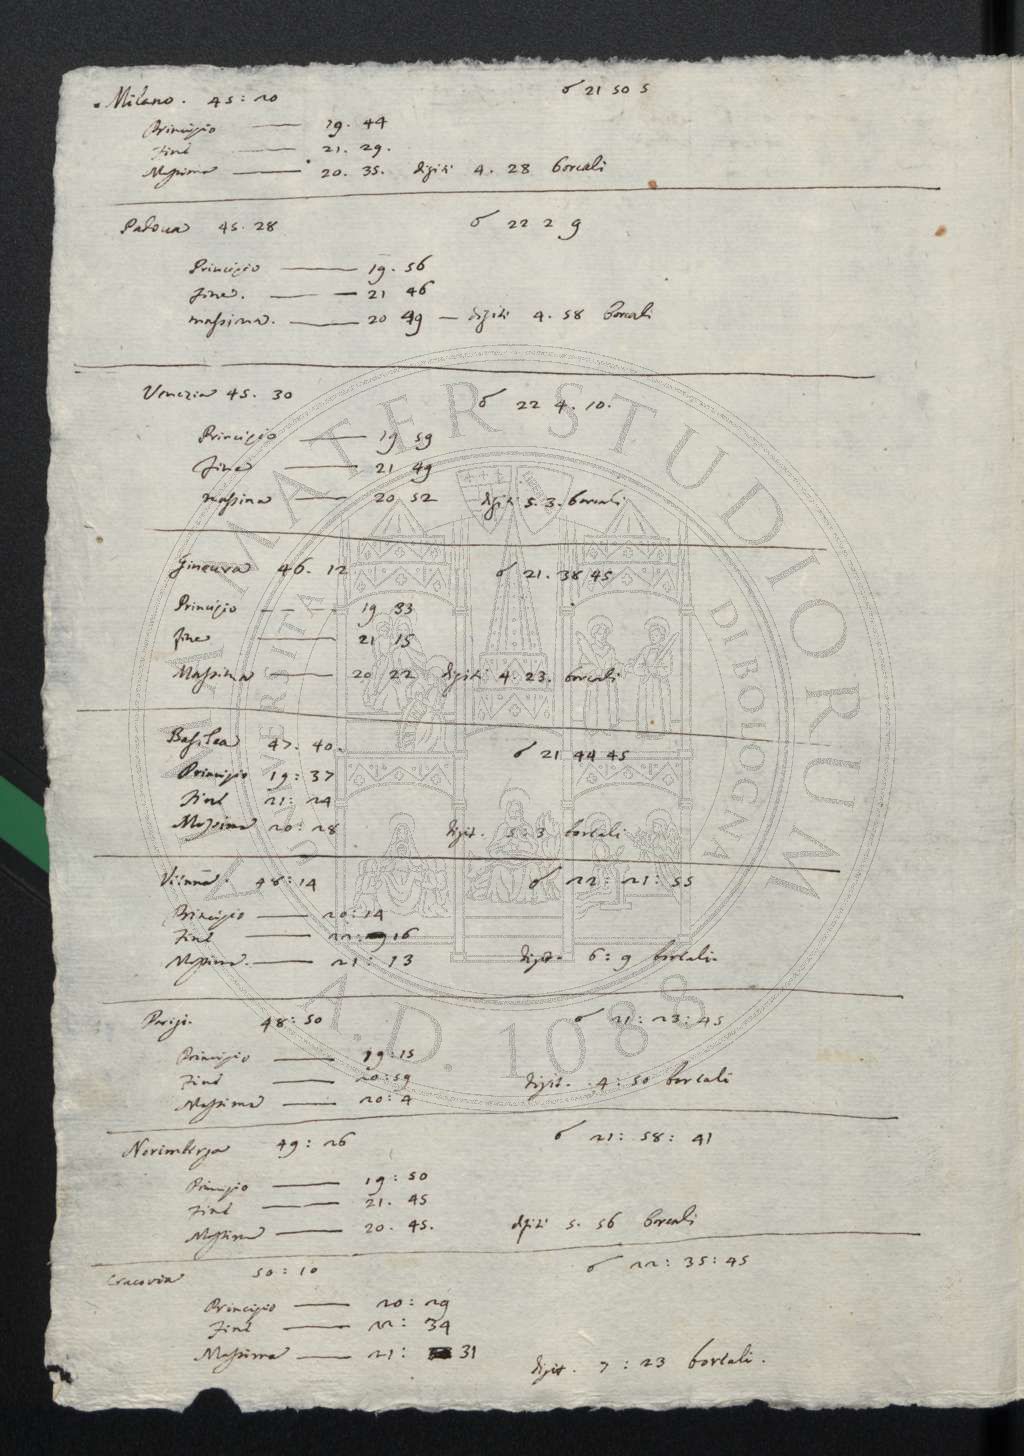 Milano. 45 : 20 ☌ 21 50 5
Principio — 19. 44
Fine — 21. 29.
Massima — 20. 35. digiti 4. 28 boreali
Padoua 45. 28 ☌ 22 2 9
Principio — 19. 56
fine. — 21 46
massima. — 20 49 — digiti 4. 58 boreali
Venezia 45. 30 ☌ 22 4. 10.
Principio — 19 59
fine — 21 49
massima — 20 52 digiti 5. 3. boreali
Gineura 46. 12 ☌ 21. 38 45
Principio — 19 33
fine — 21 15
Massima — 20 22 digiti 4. 23. boreali
Basilea 47. 40. ☌ 21 44 45
Principio 19 : 37
Fine 21 : 24
Massima 20 : 28 digit. 5 : 3 boreali
Vienna. 48 : 14 ☌ 22 : 21 : 55
Principio — 20 : 14
Fine — 22 : 16
Massima. — 21 : 13 digit. 6 : 9 boreali.
Parigi. 48 : 50 ☌ 21 : 23 : 45
Principio — 19 : 15
Fine — 20 : 59
Massima — 20 : 4 digit. 4 : 50 boreali
Norimberga 49 : 26 ☌ 21 : 58 : 41
Principio — 19 : 50
Fine — 21. 45
Massima — 20. 45. digiti 5. 56 boreali
Cracovia 50 : 10 ☌ 22 : 35 : 45
Principio — 20 : 29
Fine — 22 : 34
Massima — 21 : 31 digit. 7 : 23 boreali.
ALMA MATER STUDIORUM
UNIVERSITÀ DI BOLOGNA
A.D. 1088